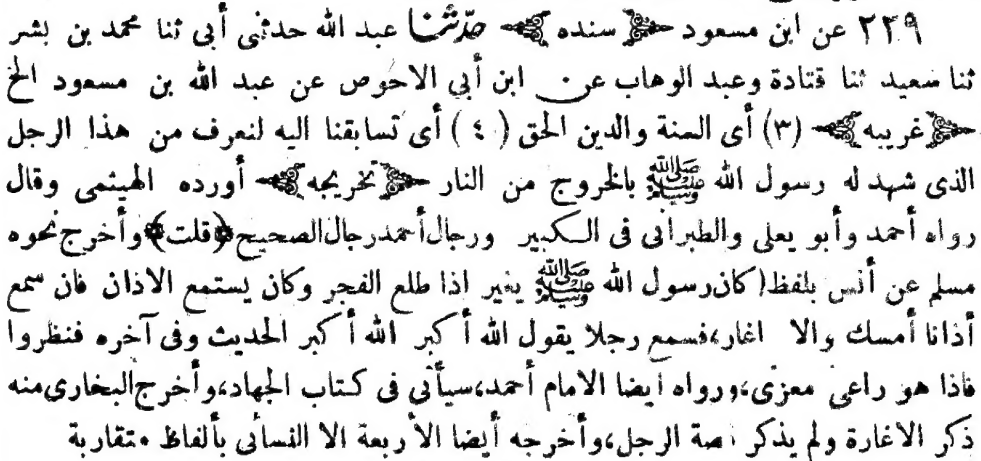 ٢٣٩ عن ابن مسعود ﴿ سنده ﴾ حدثنا عبد الله حدثنى أبى ثنا محمد بن بشر
ثنا سعيد ثنا قتادة وعبد الوهاب عن ابن أبي الاحوص عن عبد الله بن مسعود الخ
﴿ غريبه ﴾ (٣) أى السنة والدين الحق (٤) أى تسابقنا اليه لنعرف من هذا الرجل
الذى شهد له رسول الله ﷺ بالخروج من النار ﴿ تخريجه ﴾ أورده الهيثمى وقال
رواه أحمد وأبو يعلى والطبرانى فى الكبير ورجال أحمد رجال الصحيح ﴿قلت﴾ وأخرج نحوه
مسلم عن أنس بلفظ (كان رسول الله ﷺ يغير اذا طلع الفجر وكان يستمع الاذان فان سمع
أذانا أمسك والا اغار،فسمع رجلا يقول الله أكبر الله أكبر الحديث وفى آخره فنظروا
فاذا هو راعى معزى،ورواه أيضا الامام أحمد،سيأتى فى كتاب الجهاد،وأخرج البخارى منه
ذكر الاغارة ولم يذكر صة الرجل،وأخرجه أيضا الأربعة الا النسائى بألفاظ متقاربة